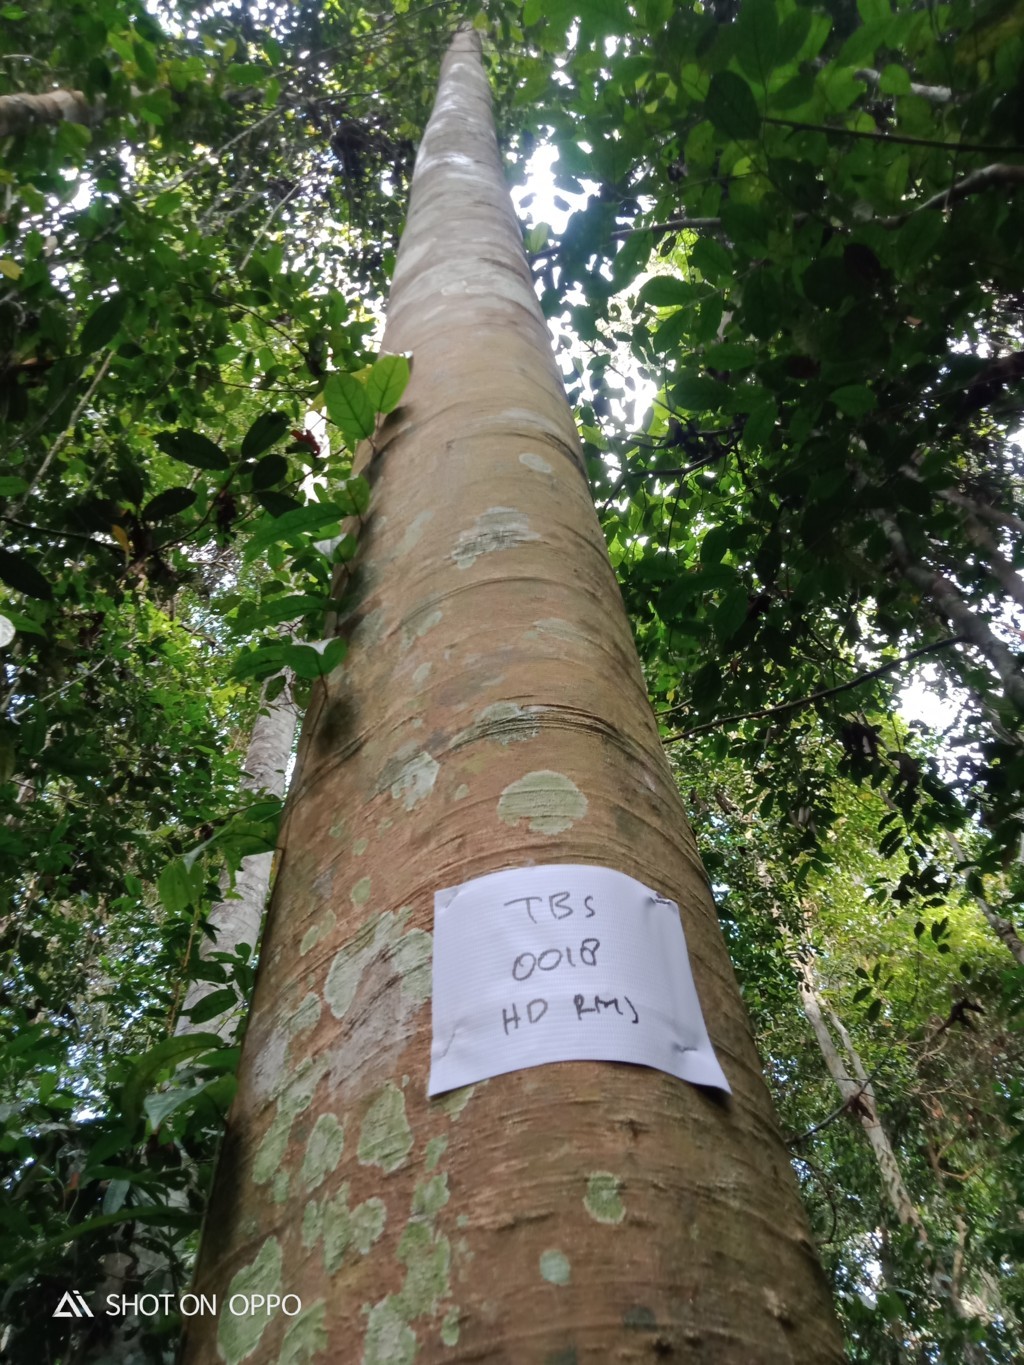 TBS
0018
HD RMJ
SHOT ON OPPO